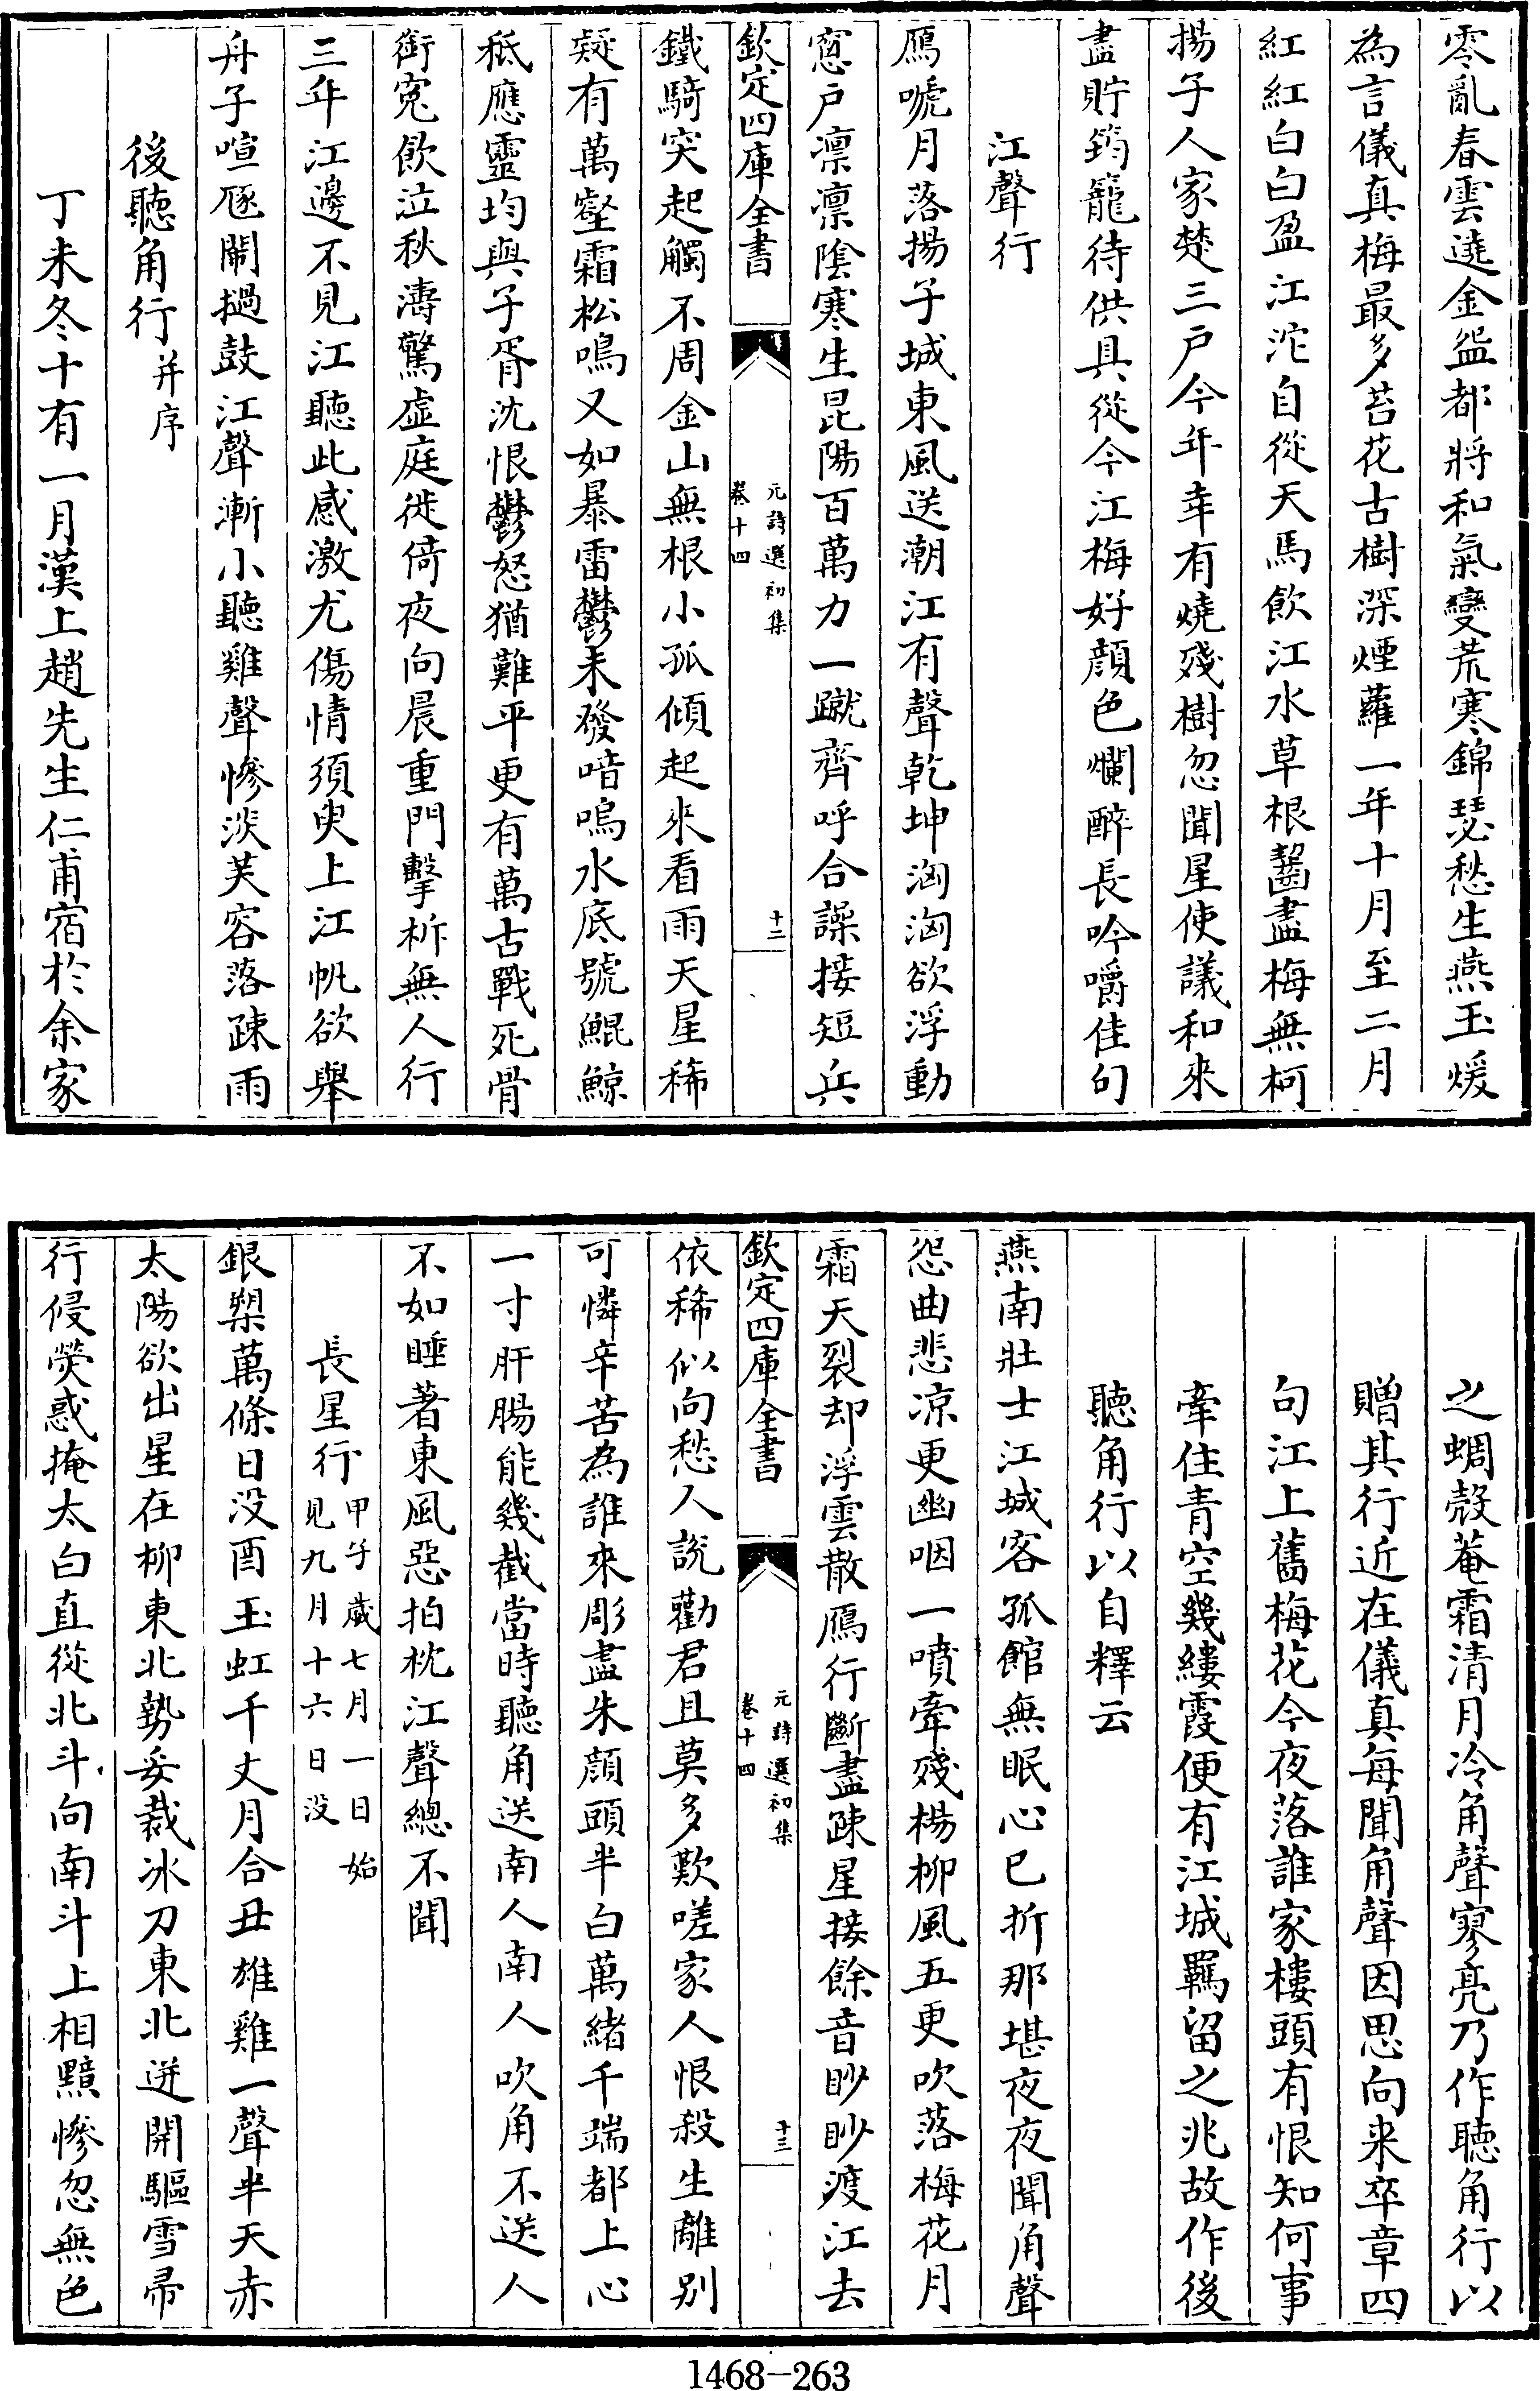 零亂春雲遶金盌都將和氣變荒寒錦瑟愁生燕玉煖
為言儀真梅最多苔花古樹深煙蘿一年十月至二月
紅紅白白盈江沱自從天馬飲江水草根齧盡梅無柯
揚子人家楚三戶今年幸有燒殘樹忽聞星使議和來
盡貯筠籠待供具從今江梅好顏色爛醉長吟嚼佳句
江聲行
鴈唬月落揚子城東風送潮江有聲乾坤洶洶欲浮動
窓戶凛凛陰寒生昆陽百萬力一蹴齊呼合譟接短兵
欽定四庫全書
元詩選初集
卷十四
十二
鐵騎突起觸不周金山無根小孤傾起來看雨天星稀
疑有萬壑霜松鳴又如暴雷鬱未發喑嗚水底號鯤鯨
秪應靈均與子胥沈恨鬱怒猶難平更有萬古戰死骨
銜寃飲泣秋濤驚虛庭徙倚夜向晨重門擊柝無人行
三年江邊不見江聽此感激尤傷情須臾上江帆欲舉
舟子喧豗鬧撾鼓江聲漸小聽雞聲慘淡芙容落疎雨
後聽角行并序
丁未冬十有一月漢上趙先生仁甫宿於余家
之蜩殼菴霜清月冷角聲寥亮乃作聽角行以
贈其行近在儀真每聞角聲因思向来卒章四
句江上舊梅花今夜落誰家樓頭有恨知何事
牽住青空幾縷霞便有江城羈留之兆故作後
聽角行以自釋云
燕南壯士江城客孤館無眠心已折那堪夜夜聞角聲
怨曲悲凉更幽咽一噴牽殘楊柳風五更吹落梅花月
霜天裂却浮雲散鴈行斷盡疎星接餘音眇眇渡江去
欽定四庫全書
元詩選初集
卷十四
十三
依稀似向愁人說勸君且莫多歎嗟家人恨殺生離別
可憐辛苦為誰來彫盡朱顏頭半白萬緒千端都上心
一寸肝腸能幾截當時聽角送南人南人吹角不送人
不如睡著東風惡拍枕江聲總不聞
長星行甲子歲七月一日始
見九月十六日没
銀槊萬條日没酉玉虹千丈月合丑雄雞一聲半天赤
太陽欲出星在柳東北勢妥裁冰刀東北迸開驅雪帚
行侵熒惑掩太白直從北斗向南斗上相黯慘忽無色
1468-263